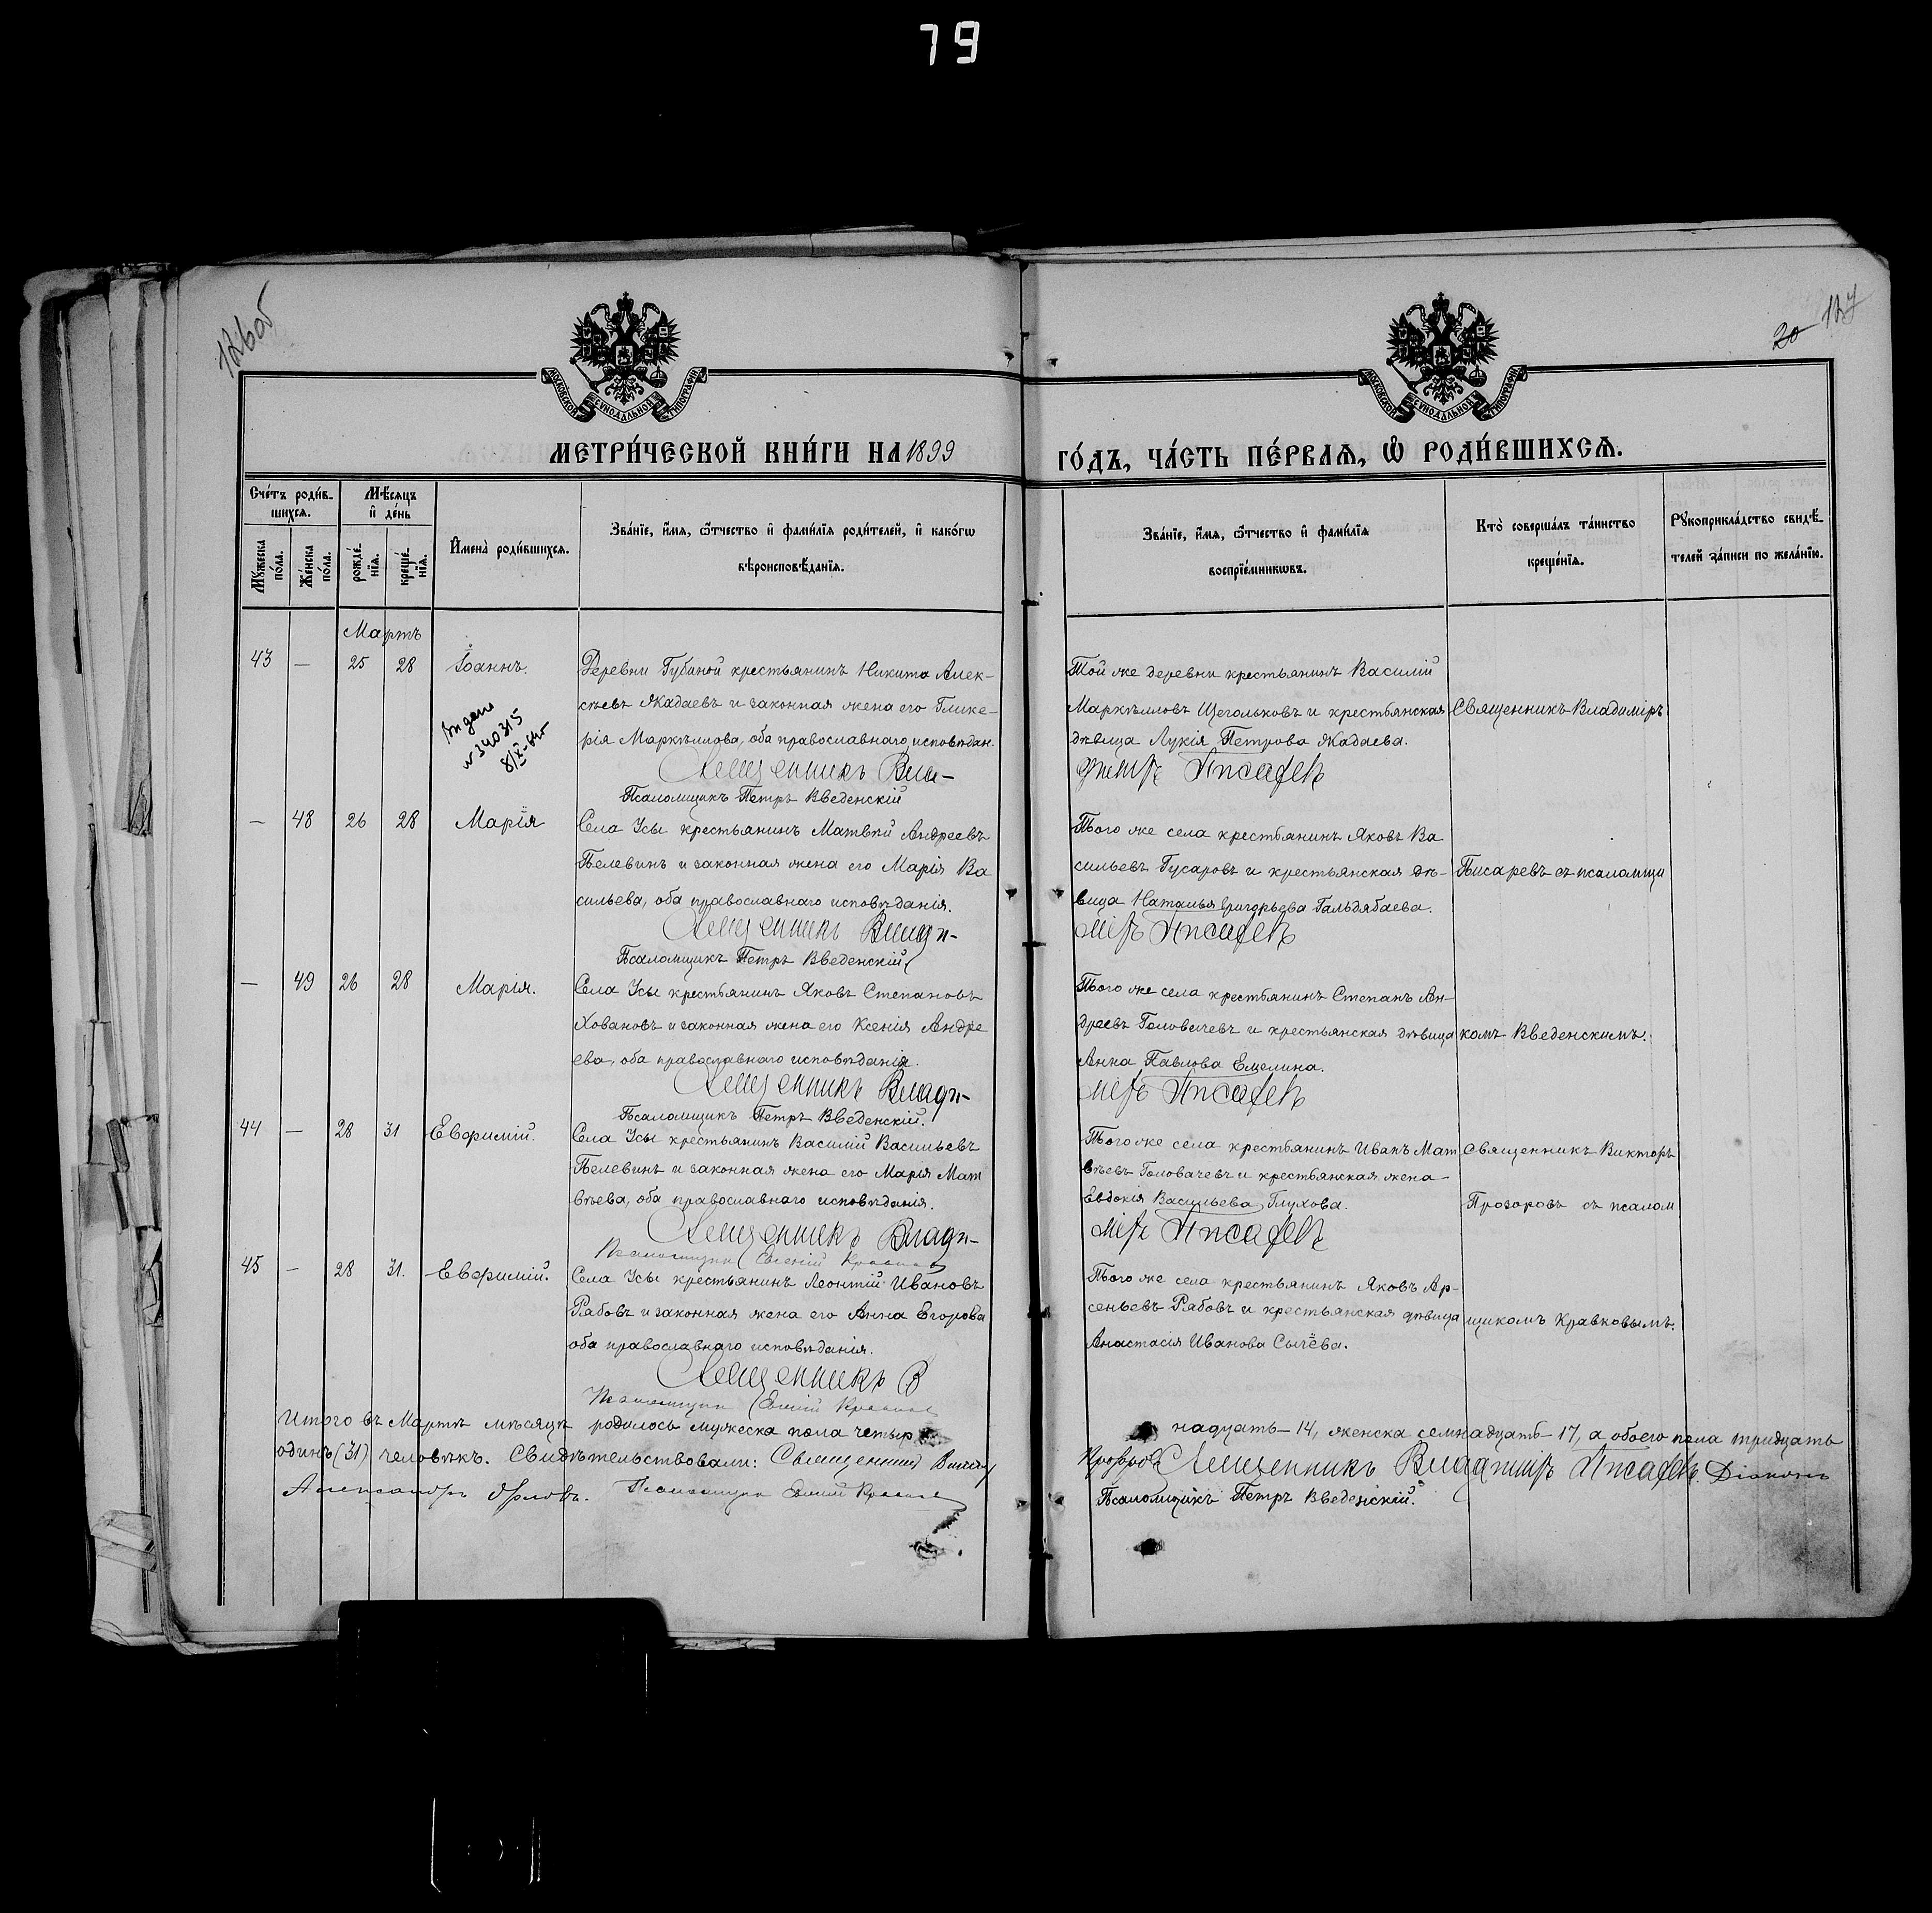 79
126об
20 127
МОСКОВСКОЙ СУНОДАЛЬНОЙ ТИПОГРАФИИ
МОСКОВСКОЙ СУНОДАЛЬНОЙ ТИПОГРАФИИ
МЕТРИ́ЧЕСКОЙ КНИ́ГИ НА 1899 ГО́ДЪ, ЧА́СТЬ ПЕ́РВАѦ, Ѽ РОДИ́ВШИХСѦ.
Счётъ роди́в-
шихся.
Мѣ́сяцъ
и҆ де́нь
Му́жеска по́ла.
Же́нска по́ла.
рожде́-
нїя.
креще́-
нїя.
И҆мена̀ роди́вшихся.
Зва́нїе, и҆́мя, ѻ҆́тчество и҆ фами́лїя роди́телей, и҆ како́гѡ
вѣроисповѣ́данїя.
Зва́нїе, и҆́мя, ѻ҆́тчество и҆ фами́лїя
воспрїе́мникѡвъ.
Кто̀ соверша́лъ та́инство
креще́нїя.
Рꙋкоприкла́дство свидѣ́-
телей за́писи по жела́нїю.
Мартъ
43 — 25 28 Іоаннъ. Деревни Губаной крестьянинъ Никита Алек-
сѣевъ Жадаевъ и законная жена его Глике-
рія Маркѣлова, оба православнаго исповѣдан.
Священникъ Вла-
Псаломщикъ Петръ Введенскій
Той же деревни крестьянинъ Василій
Маркѣловъ Щегольковъ и крестьянская
дѣвица Лукія Петрова Жадаева.
диміръ Писаревъ
Священникъ Владиміръ
№340315
— 48 26 28 Марія Села Усы крестьянинъ Матвѣй Андреевъ
Пелевинъ и законная жена его Марія Ва
сильева, оба православнаго исповѣданія.
Священникъ Влади-
Псаломщикъ Петръ Введенскій
Того же села крестьянинъ Яковъ Ва
сильевъ Гусаровъ и крестьянская дѣ-
вица Наталья Григорьева Гальдябаева.
міръ Писаревъ
Писаревъ съ псаломщи
— 49 26 28 Марія. Села Усы крестьянинъ Яковъ Степановъ
Ховановъ и законная жена его Ксенія Андре
ева, оба православнаго исповѣданія.
Священникъ Влади-
Псаломщикъ Петръ Введенскій.
Того же села крестьянинъ Степанъ Ан-
дреевъ Головачевъ и крестьянская дѣвица
Анна Павлова Емелина.
міръ Писаревъ
комъ Введенскимъ.
44 — 28 31 Евфимій. Села Усы крестьянинъ Василій Васильевъ
Пелевинъ и законная жена его Марія Мат
вѣева, оба православнаго исповѣданія.
Священникъ Влади-
Псаломщикъ Евгеній Кравковъ
Того же села крестьянинъ Иванъ Мат
вѣевъ Головачевъ и крестьянская жена
Евдокія Васильева Глухова.
міръ Писаревъ
Священникъ Викторъ
Прозоровъ съ псалом
45 — 28 31. Евфимій. Села Усы крестьянинъ Леонтій Ивановъ
Рябовъ и законная жена его Анна Егорова
оба православнаго исповѣданія.
Священникъ В
Псаломщикъ Евгеній Кравковъ
Того же села крестьянинъ Яковъ Ар-
сеньевъ Рябовъ и крестьянская дѣвица
Анастасія Иванова Сычёва.
щикомъ Кравковымъ.
Итого въ Мартѣ мѣсяцѣ родилось мужеска пола четыр надцать—14, женска семнадцать—17, а обоего пола тридцать
одинъ (31) человѣкъ. Свидѣтельствовали: Священникъ Викторъ Прозоровъ Священникъ Владиміръ Писаревъ. Діаконъ
Александръ Орловъ. Псаломщикъ Евгеній Кравковъ Псаломщикъ Петръ Введенскій.